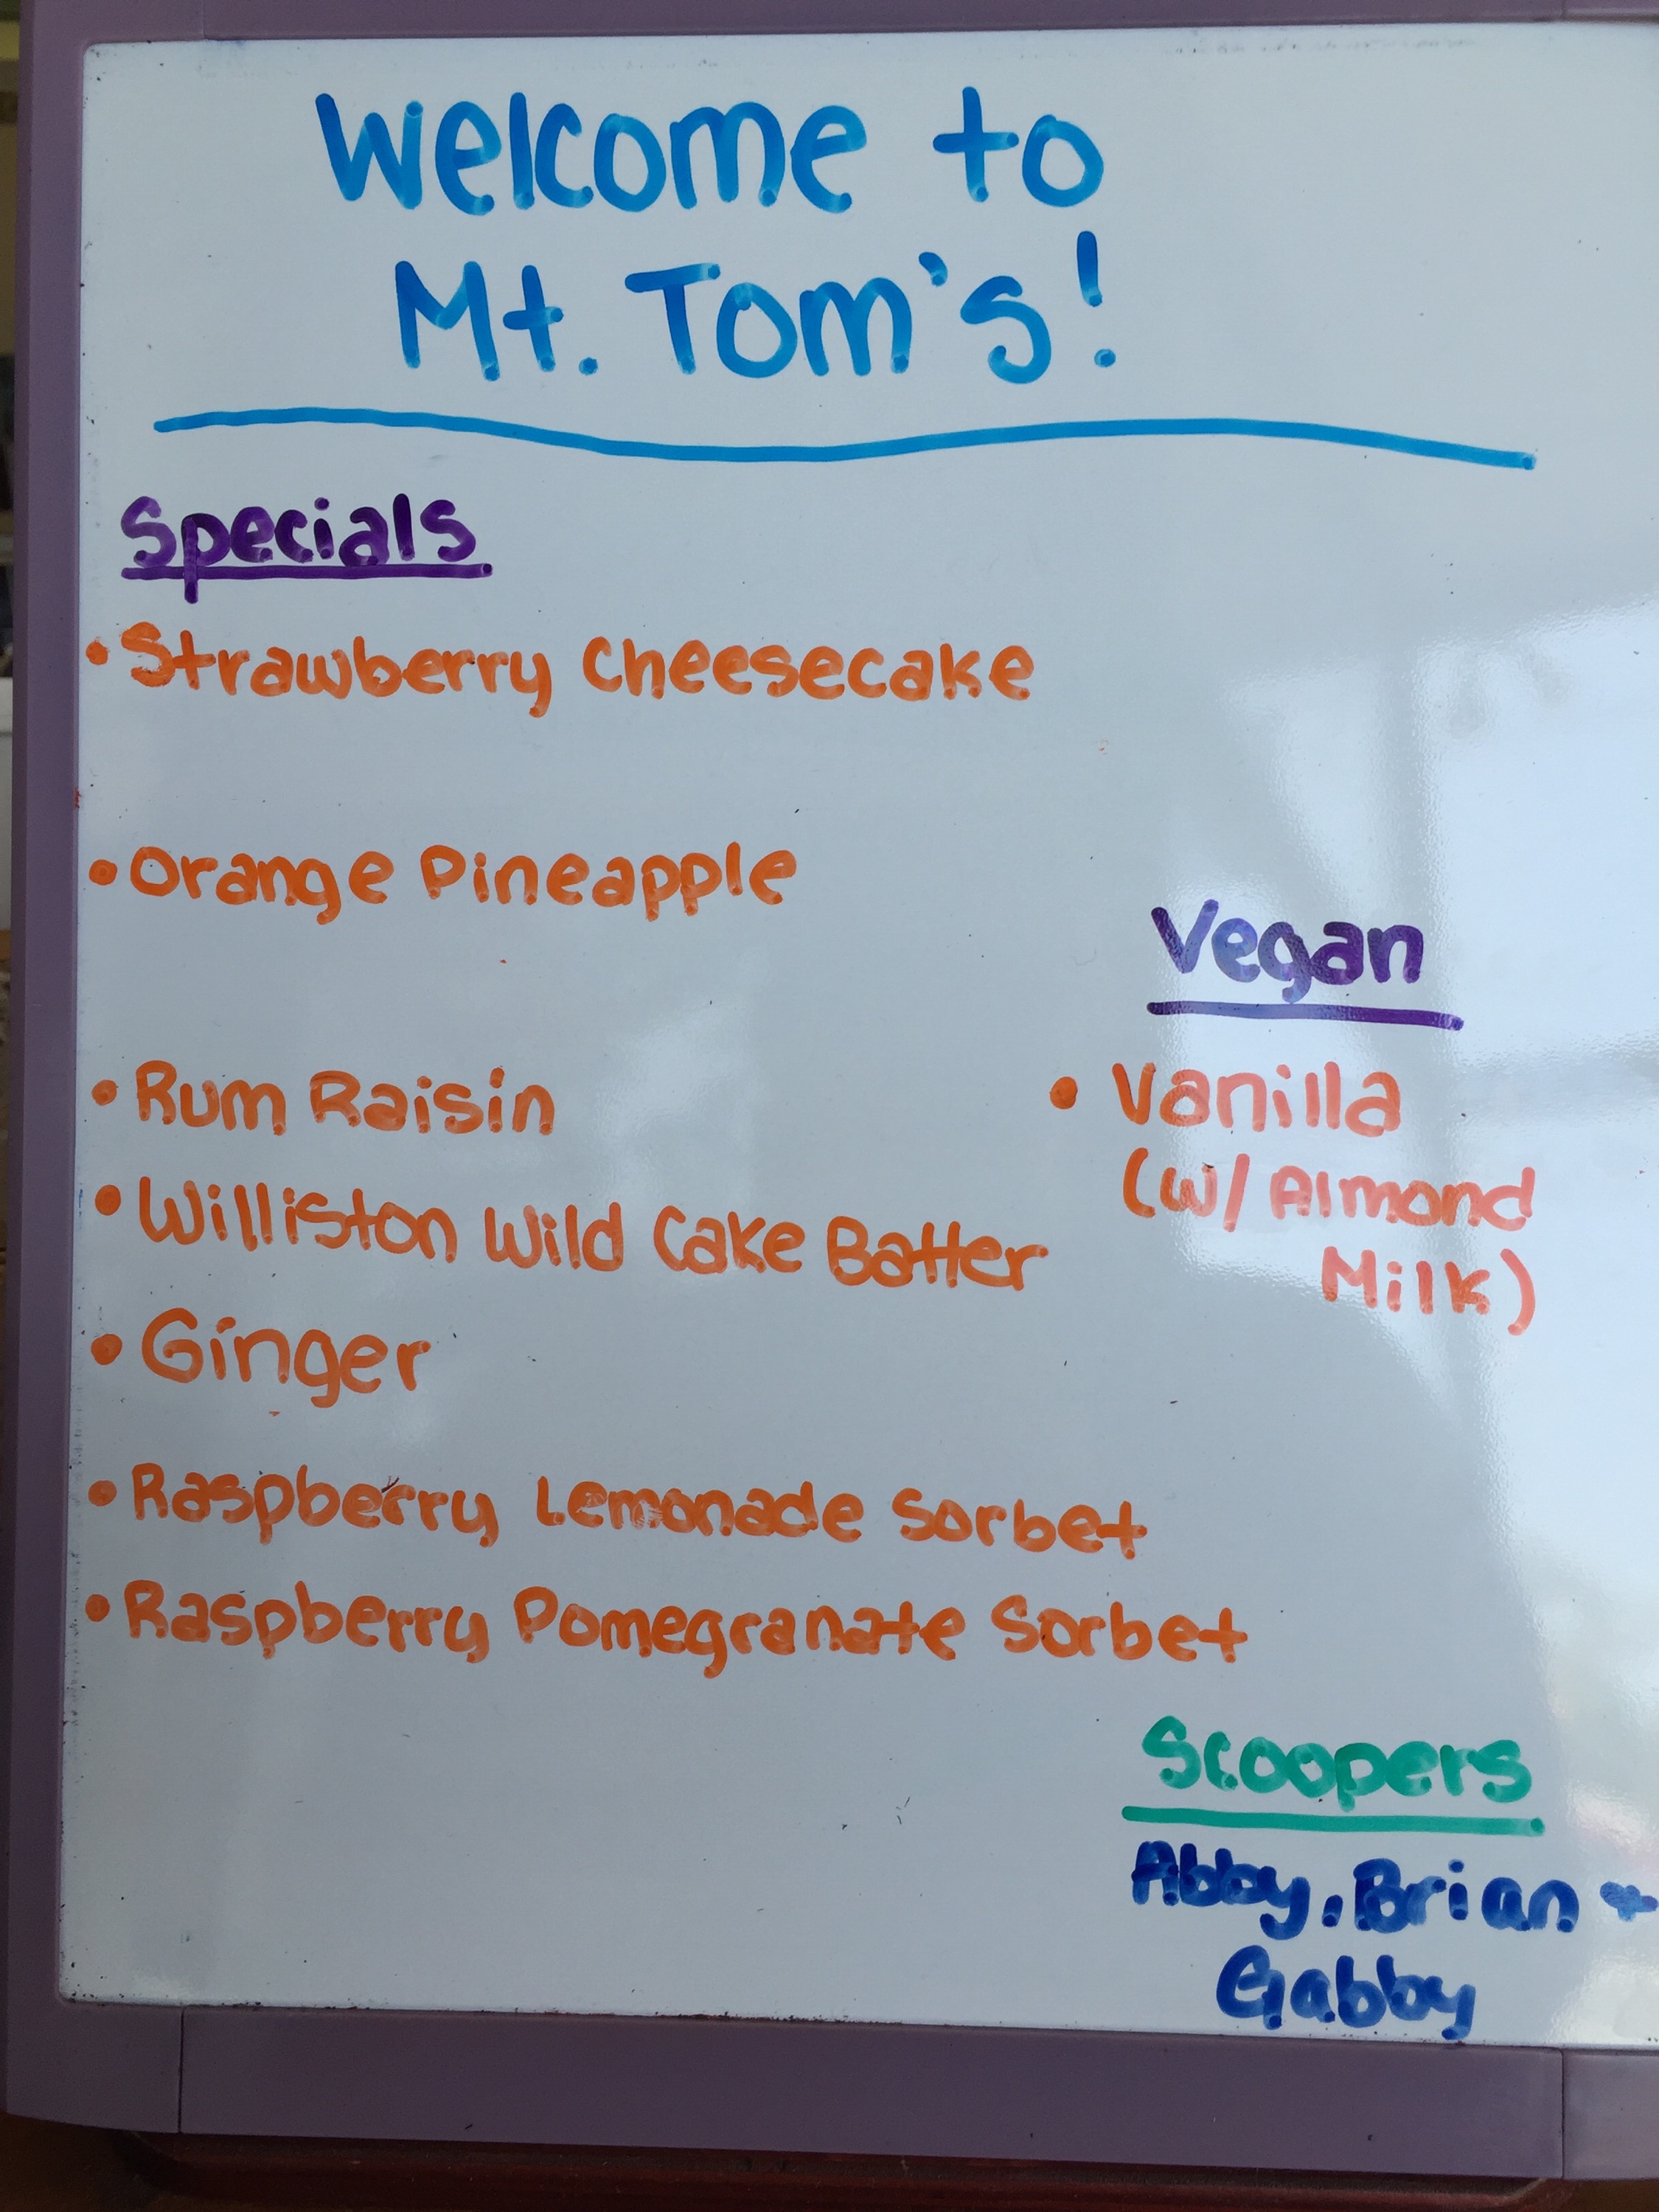 Welcome to
Mt. Tom's!
Specials
• Strawberry Cheesecake
• Orange Pineapple
• Rum Raisin
• Williston Wild Cake Batter
• Ginger
• Raspberry Lemonade Sorbet
• Raspberry Pomegranate Sorbet
Vegan
• Vanilla
(w/ Almond
Milk)
Scoopers
Abby, Brian +
Gabby